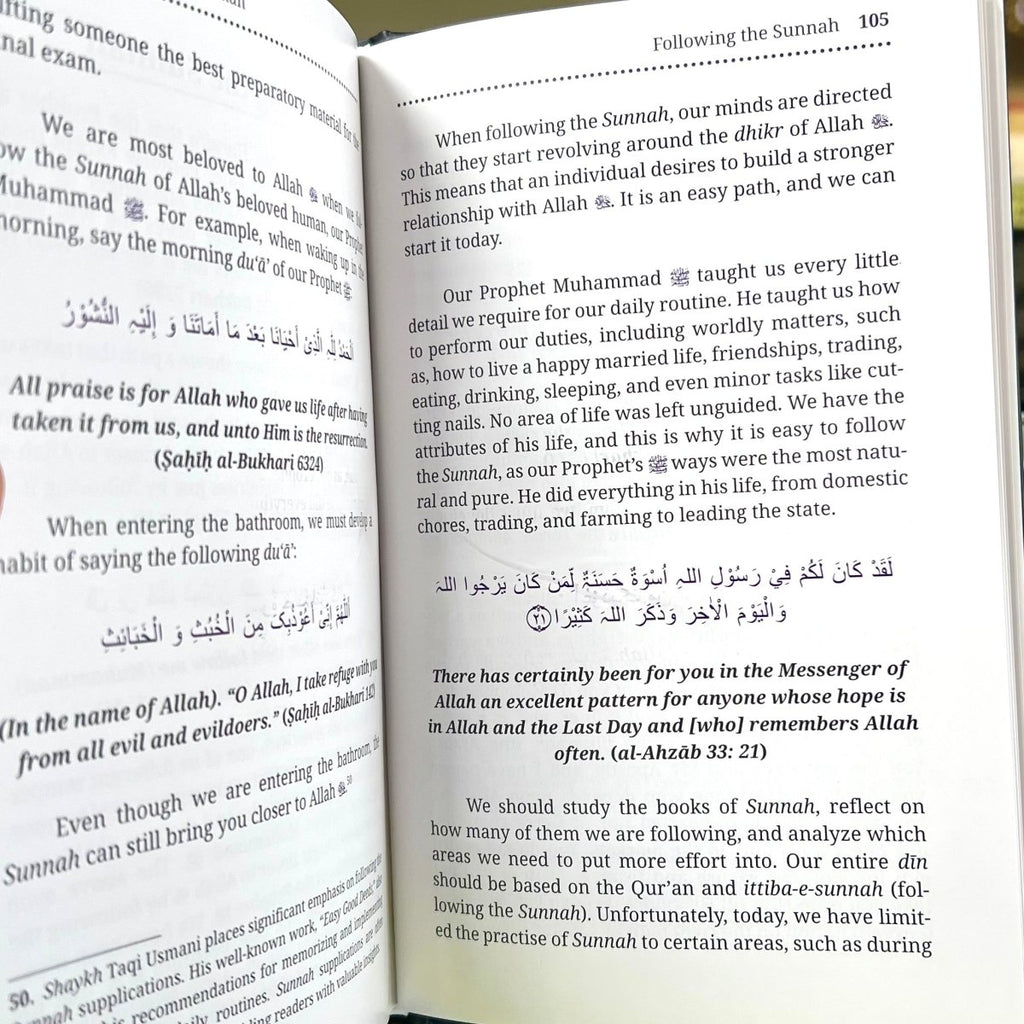 someone the best preparatory material for the
exam.
We are most beloved to Allah ﷻ when we
the Sunnah of Allah's beloved human, our Prophet
Muhammad ﷺ. For example, when waking up in the
morning, say the morning du‘ā’ of our Prophet ﷺ:
الْحَمْدُ لِلّٰهِ الَّذِيْ أَحْيَانَا بَعْدَ مَا أَمَاتَنَا وَ إِلَيْهِ النُّشُوْرُ
All praise is for Allah who gave us life after having
taken it from us, and unto Him is the resurrection.
(Ṣaḥīḥ al-Bukhari 6324)
When entering the bathroom, we must develop a
habit of saying the following du‘ā’:
اللّٰهُمَّ إِنِّيْ أَعُوْذُبِكَ مِنَ الْخُبُثِ وَ الْخَبَائِثِ
(In the name of Allah). “O Allah, I take refuge with you
from all evil and evildoers.” (Ṣaḥīḥ al-Bukhari 142)
Even though we are entering the bathroom, the
Sunnah can still bring you closer to Allah ﷻ.50
50. Shaykh Taqi Usmani places significant emphasis on following the
supplications. His well-known work, “Easy Good Deeds,” also
recommendations for memorizing and implementing
routines. Sunnah supplications are often
readers with valuable insights.
Following the Sunnah 105
When following the Sunnah, our minds are directed
so that they start revolving around the dhikr of Allah ﷻ.
This means that an individual desires to build a stronger
relationship with Allah ﷻ. It is an easy path, and we can
start it today.
Our Prophet Muhammad ﷺ taught us every little
detail we require for our daily routine. He taught us how
to perform our duties, including worldly matters, such
as, how to live a happy married life, friendships, trading,
eating, drinking, sleeping, and even minor tasks like cut-
ting nails. No area of life was left unguided. We have the
attributes of his life, and this is why it is easy to follow
the Sunnah, as our Prophet’s ﷺ ways were the most natu-
ral and pure. He did everything in his life, from domestic
chores, trading, and farming to leading the state.
لَقَدْ كَانَ لَكُمْ فِيْ رَسُوْلِ اللهِ اُسْوَةٌ حَسَنَةٌ لِّمَنْ كَانَ يَرْجُوا اللهَ
وَالْيَوْمَ الْاٰخِرَ وَذَكَرَ اللهَ كَثِيْرًا ۝٢١
There has certainly been for you in the Messenger of
Allah an excellent pattern for anyone whose hope is
in Allah and the Last Day and [who] remembers Allah
often. (al-Ahzāb 33: 21)
We should study the books of Sunnah, reflect on
how many of them we are following, and analyze which
areas we need to put more effort into. Our entire dīn
should be based on the Qur’an and ittiba-e-sunnah (fol-
lowing the Sunnah). Unfortunately, today, we have limit-
ed the practise of Sunnah to certain areas, such as during